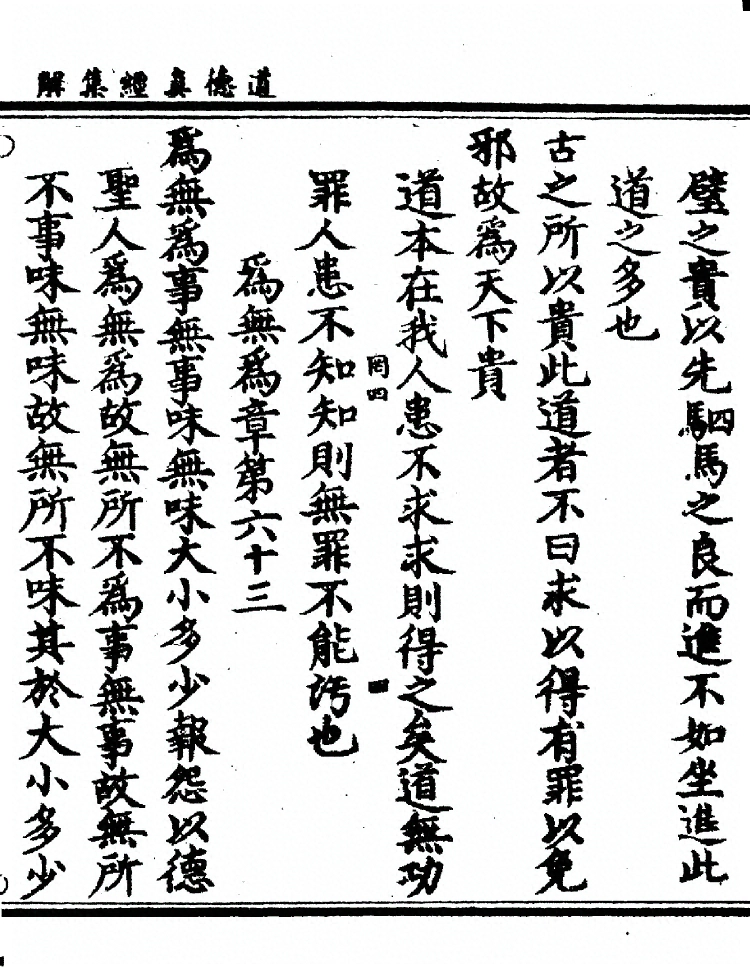 道德真經集解
璧之寶以先駟馬之良而進不如坐進此
道之多也
古之所以貴此道者不曰求以得有罪以免
邪故為天下貴
道本在我人患不求求則得之矣道無功
罔四
四
罪人患不知知則無罪不能污也
為無為章第六十三
為無為事無事味無味大小多少報怨以德
聖人為無為故無所不為事無事故無所
不事味無味故無所不味其於大小多少